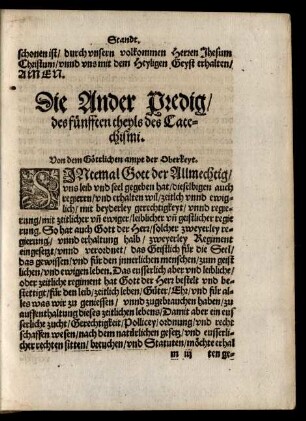 Standt.
schonen ist/ durch vnsern volkommen Herren Jhesum
Christum/ vnnd vns mit dem Heyligen Geyst erhalten/
AMEN.
Die Ander Predig/
des fünfften theyls des Cate-
chismi.
Von dem Göttlichen ampt der Oberkeyt.
SINtemal Gott der Allmechtig/
vns leib vnd seel gegeben hat/ dieselbigen auch
regieren/ vnd erhalten wil/ zeitlich vnnd ewig-
lich/ mit beyderley gerechtigkeyt/ vnnd regie-
rung/ mit zeitlicher vñ ewiger/ leiblicher vñ geistlicher regie
rung. So hat auch Gott der Herr/ solcher zweyerley re-
gierung/ vnnd erhaltung halb/ zweyerley Regiment
eingesetzt/ vnnd verordnet/ das Geistlich für die Seel/
das gewissen/ vnd für den jnnerlichen menschen/ zum geist
lichen/ vnd ewigen leben. Das eusserlich aber vnd leibliche/
oder zeitliche regiment hat Gott der Herr bestelt vnd be-
stettigt/ für den leib/ zeitlich leben/ Güter/ Ehr/ vnd für al-
les was wir zu geniessen/ vnnd zugebrauchen haben/ zu
auffenthaltung dieses zeitlichen lebens/ Damit aber ein eus
serliche zucht/ Gerechtigkeit/ Pollicey/ ordnung/ vnd recht
schaffen wesen/ nach dem natürlichen gesetz/ vnd eusserli-
cher rechten sitten/ breuchen/ vnd Statuten/ möchte erhal
m iij ten ge-